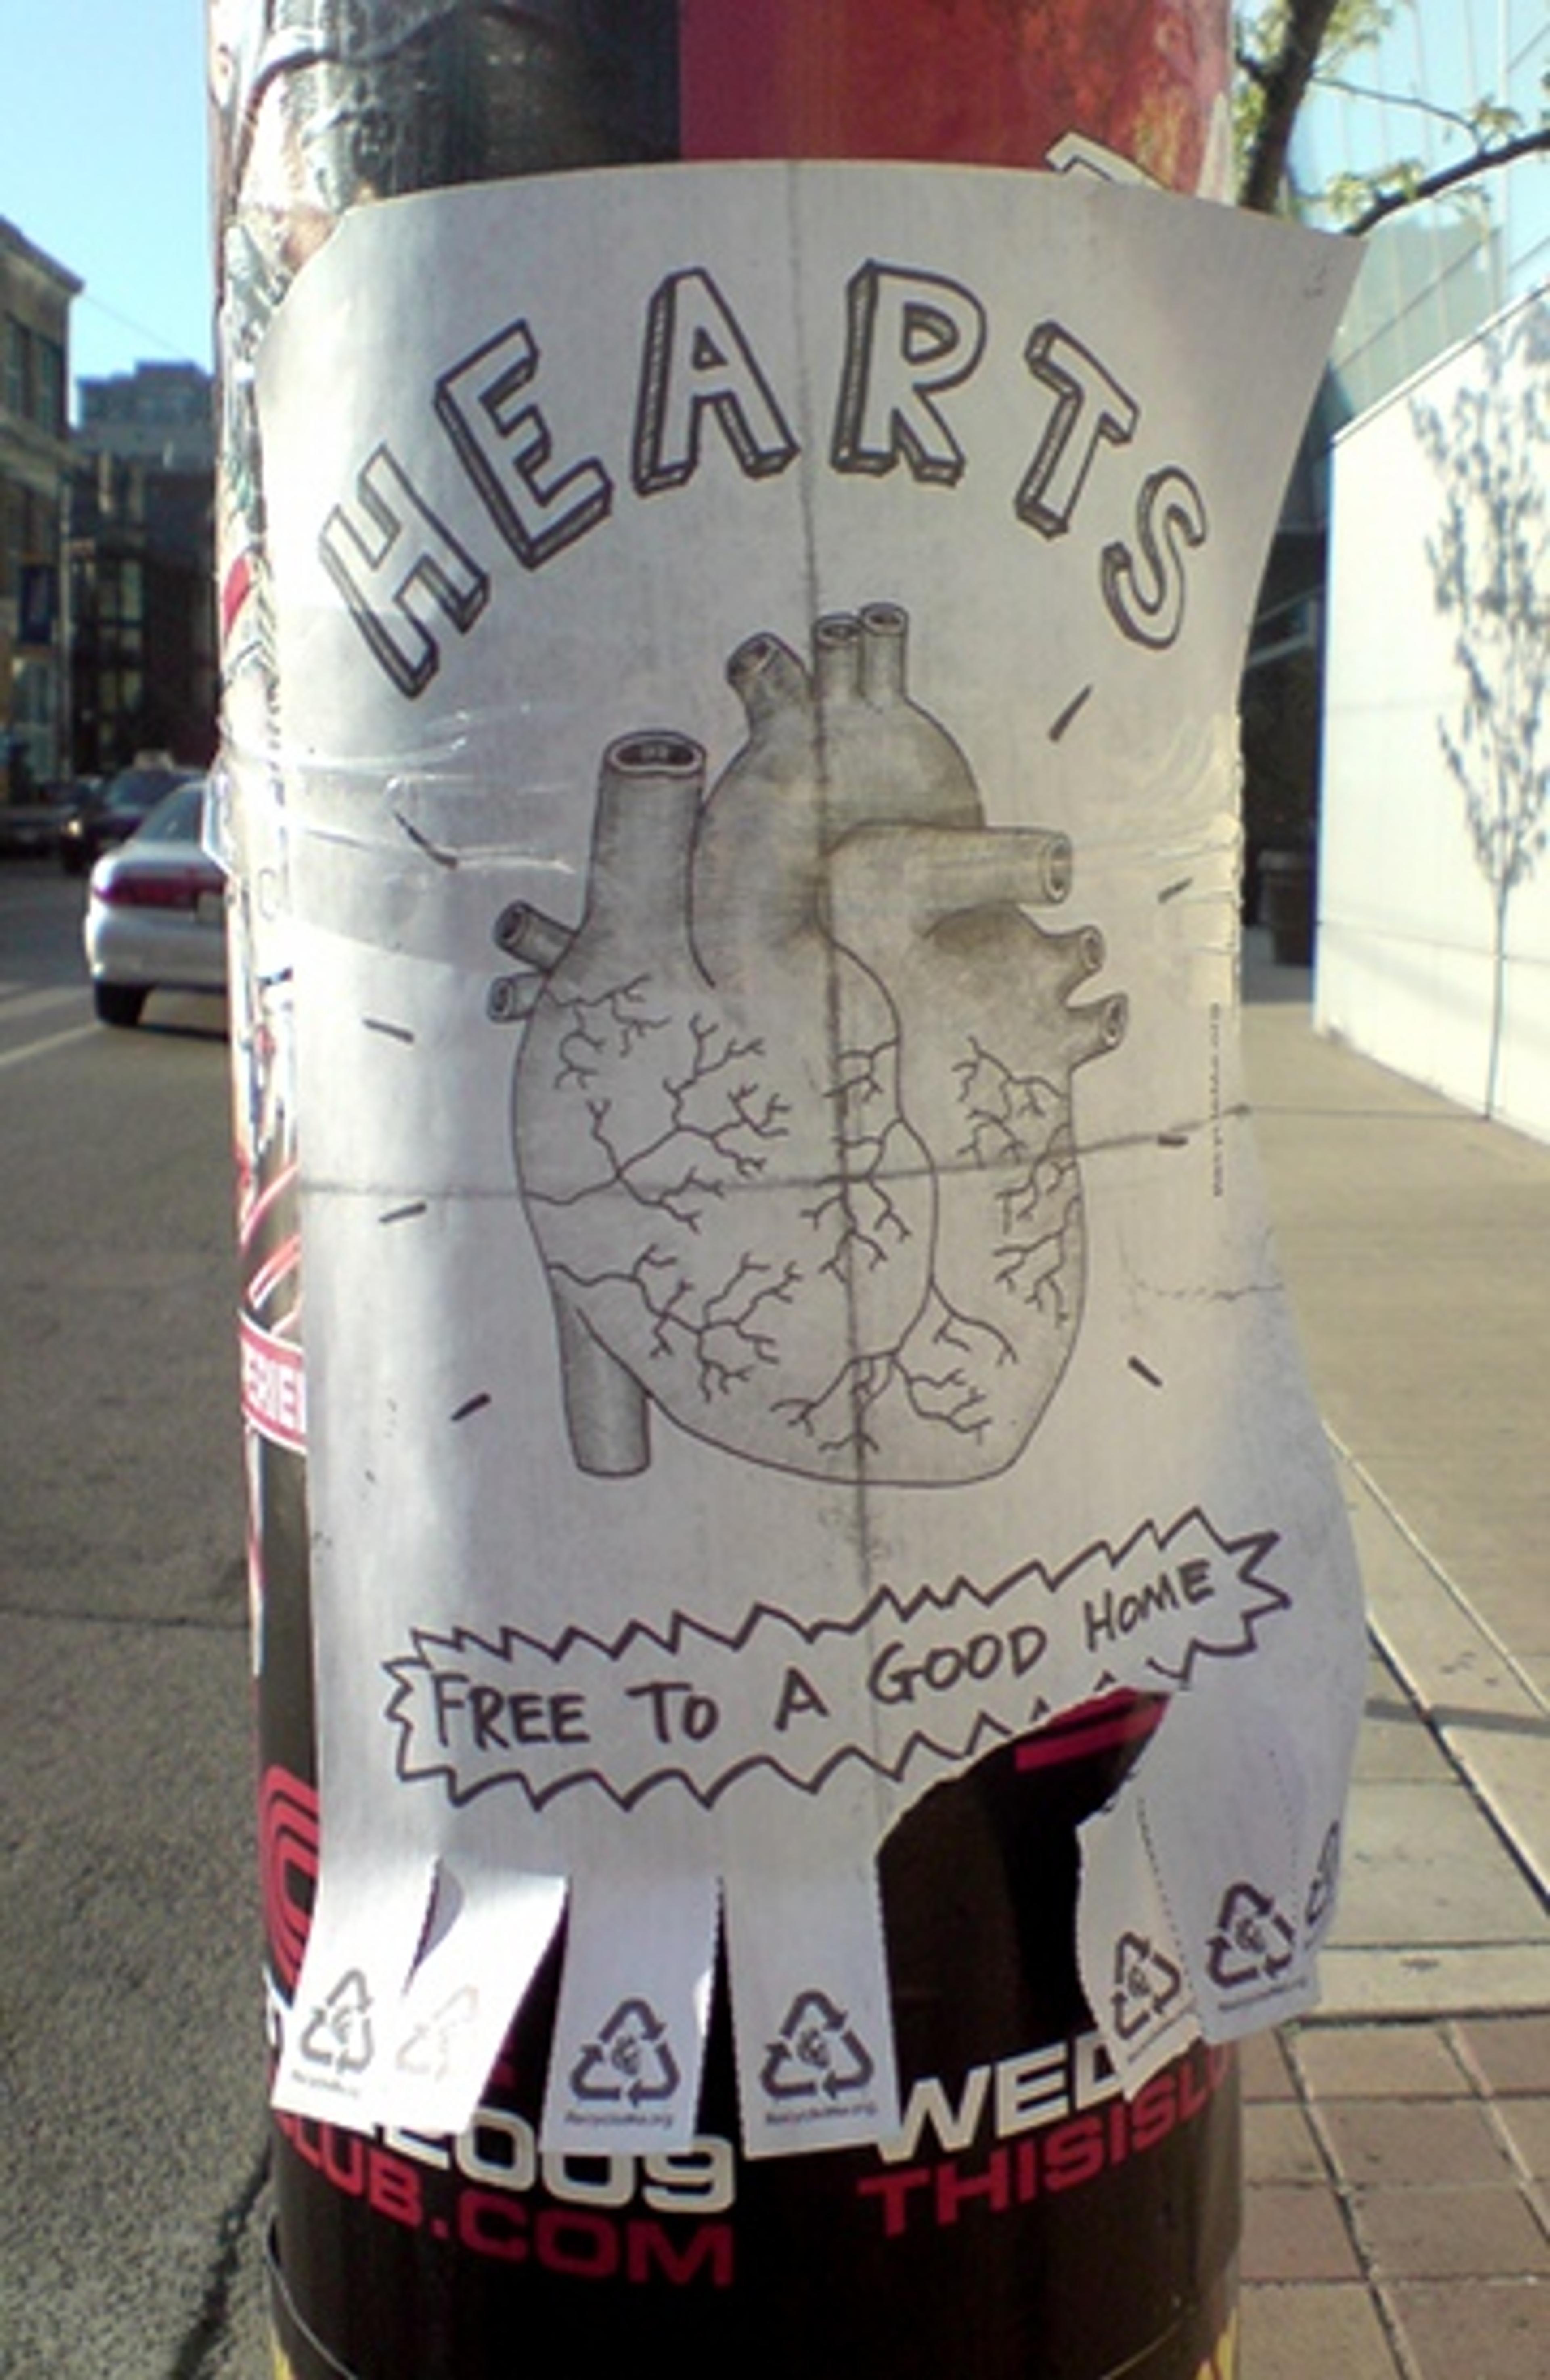 HEARTS
FREE TO A GOOD HOME
2009
WED
LUB.COM
THISISLU